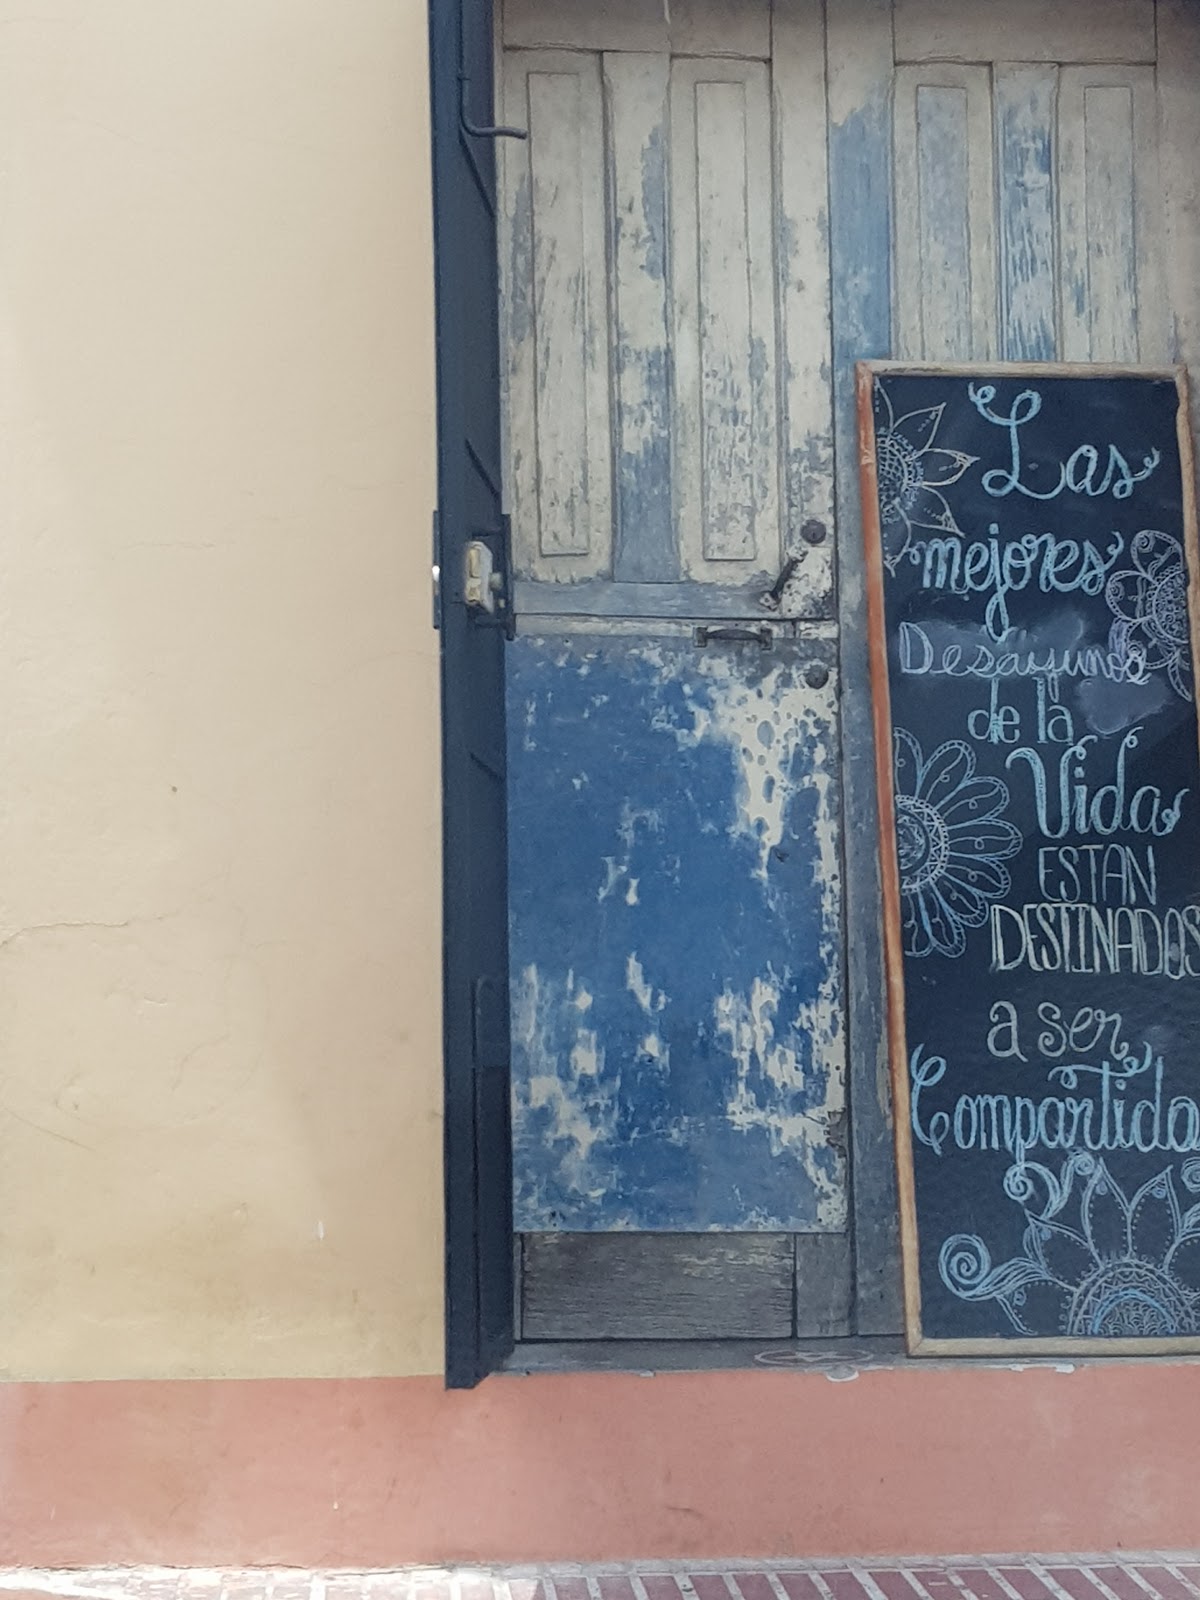 Las
mejores
Desayunos
de la
Vida
ESTAN
DESTINADOS
a ser
Compartido